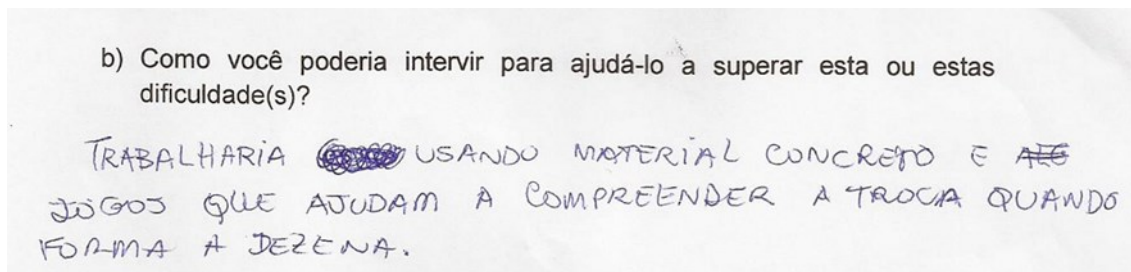 b) Como você poderia intervir para ajudá-lo a superar esta ou estas
dificuldade(s)?
TRABALHARIA USANDO MATERIAL CONCRETO E
JOGOS QUE AJUDAM A COMPREENDER A TROCA QUANDO
FORMA A DEZENA.